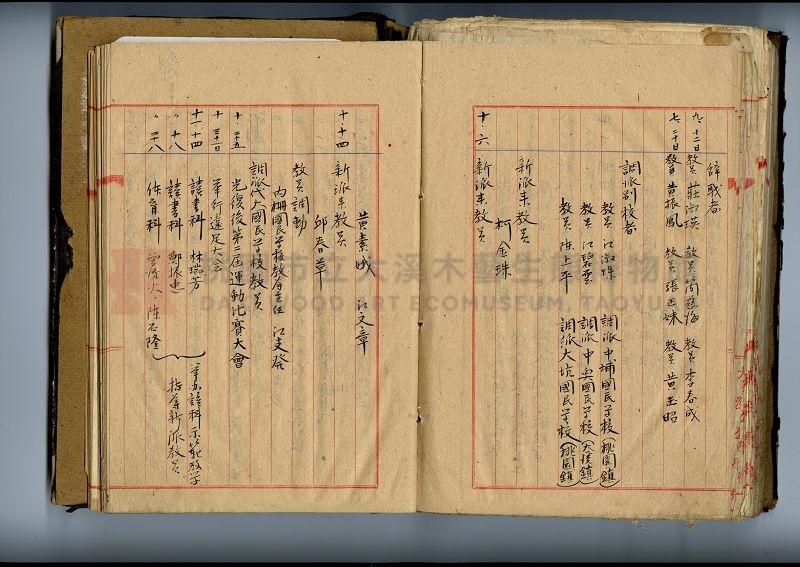 辞職者
九、十二日 教員 莊淑瑛 教員 簡慈悔 教員 李春成
七、二十日 教員 黃振鳳 教員 張正妹 教員 黃玉昭
調派別校者
教員 江淑珠 調派中埔國民学校(桃園鎮)
教員 江碧雲 調派中興國民学校(大溪鎮)
教員 陈上平 調派大坑國民学校(桃園鎮)
新派来教員
柯金珠
十、六 新派来教員
黃素成 江文章
十、十四 新派来教員
邱春草
教員調動
内柵國民学校教導主任 江支發
調派大國民学校教員
十 二十五 光復後第二屆運動比賽大會
十 三十一 舉行遠足大会
十一、十四 讀書科 林瑞芳
〃 十八 讀書科 鄭振忠
〃 二十八 体育科 陈石隆
示範教学
指導新派教員
桃園市立大溪木藝生態博物館
DAXI WOOD ART ECOMUSEUM, TAOYUAN